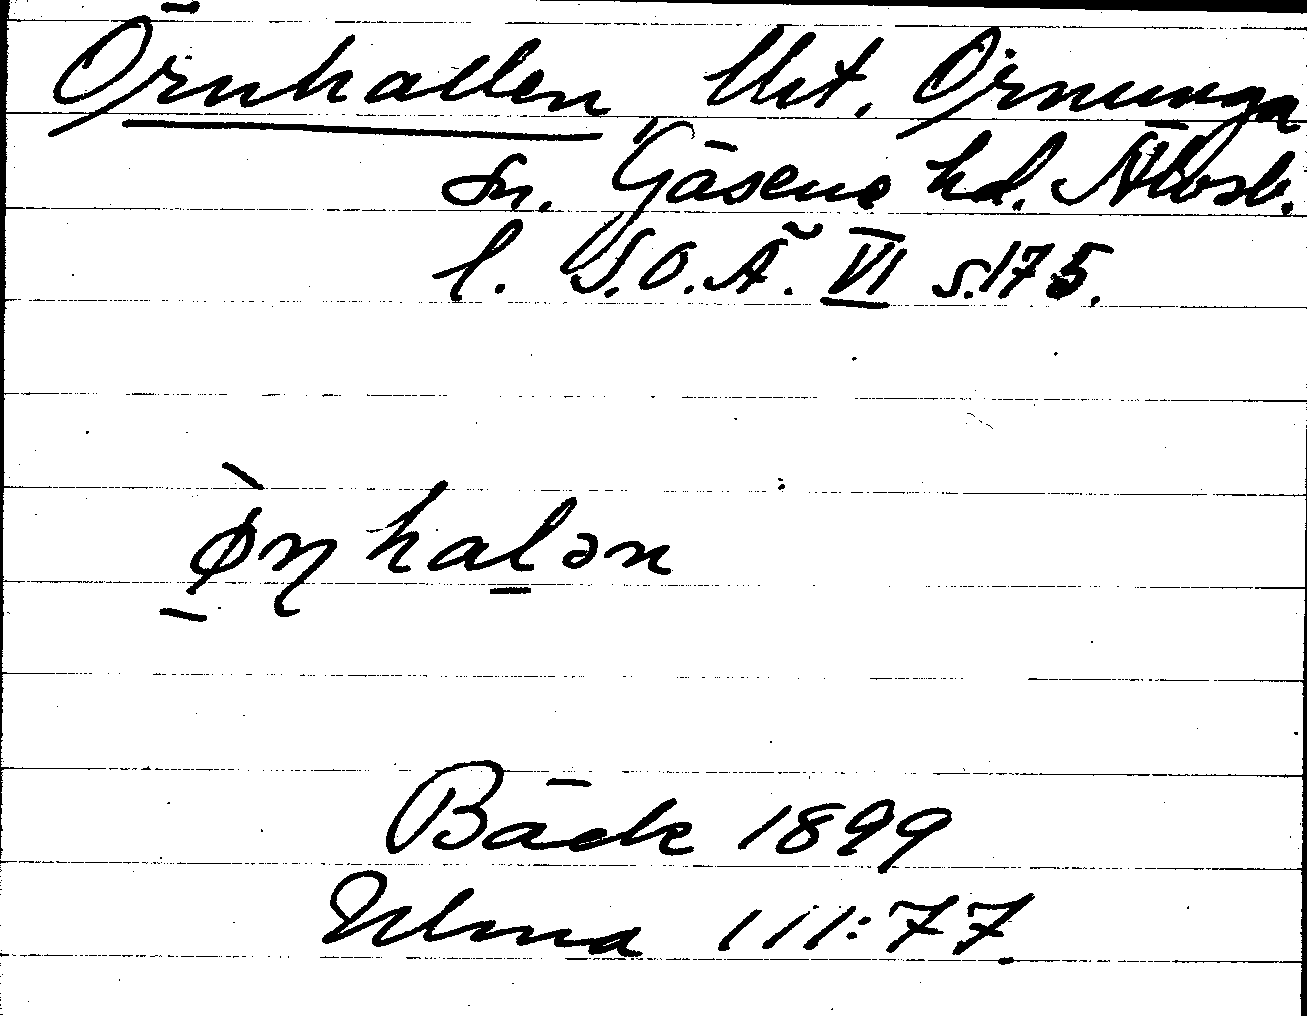 Örnhallen lht, Ornunga
sn. Gäsene hd. Älvsb.
l. S.O.Ä. VI s.175.
ø̀ɳhalən
Bäck 1899
Ulma 111:77.